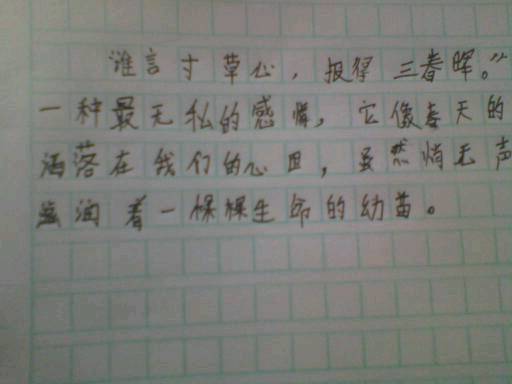 谁言寸草心，报得三春晖。”
一种最无私的感情，它像春天的
洒落在我们的心田，虽然悄无声
滋润着一棵棵生命的幼苗。